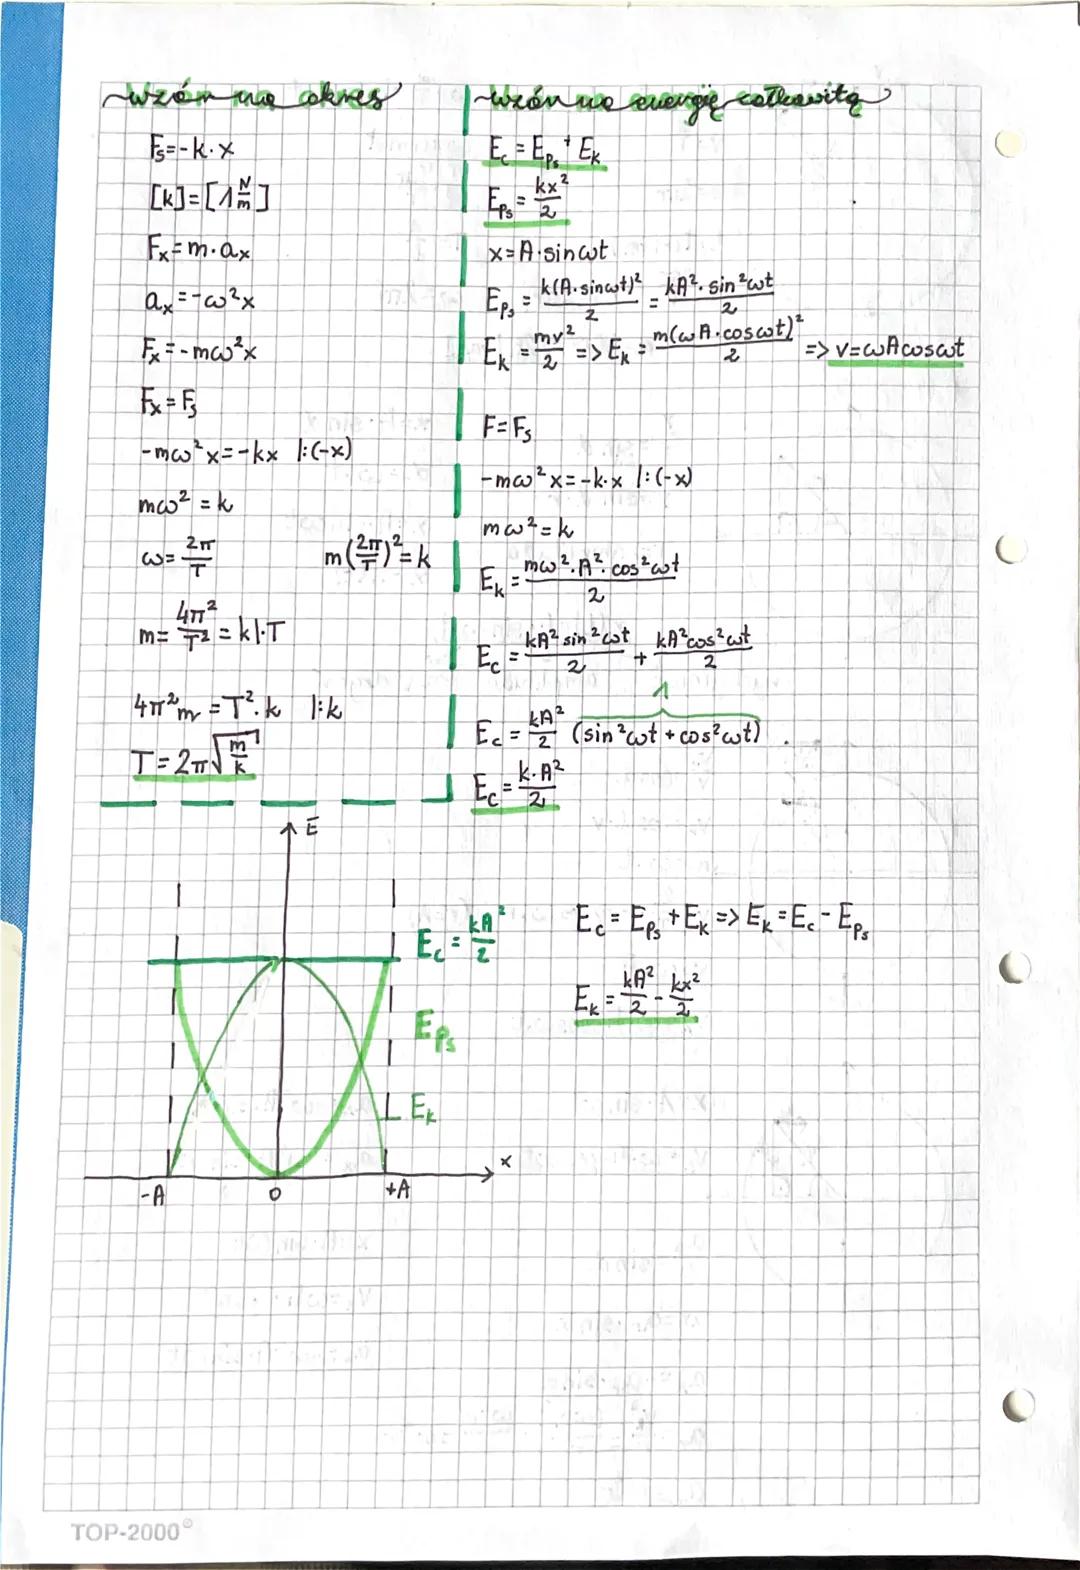 Wzór na okres
Fs=-k·x
[k]=[1 N/m]
Fx=m·ax
ax=-ω²x
Fx=-mω²x
Fx=Fs
-mω²x=-kx |:(-x)
mω²=k
ω=2π/T m(2π/T)²=k
m=4π²/T²=k|·T
4π²m=T²·k |:k
T=2π√(m/k)
Wzór na energię całkowitą
Ec=Eps+Ek
Eps=kx²/2
x=A·sinωt
Eps=k(A·sinωt)²/2=kA²·sin²ωt/2
Ek=mv²/2=>Ek=m(ωA·cosωt)²/2=>v=ωAcosωt
F=Fs
-mω²x=-k·x |:(-x)
mω²=k
Ek=mω²·A²·cos²ωt/2
Ec=kA²sin²ωt/2+kA²cos²ωt/2
1
Ec=kA²/2 (sin²ωt+cos²ωt)
Ec=k·A²/2
E
Ec=kA²/2
Eps
Ek
x
-A 0 +A
Ec=Eps+Ek=>Ek=Ec-Eps
Ek=kA²/2-kx²/2
TOP-2000®